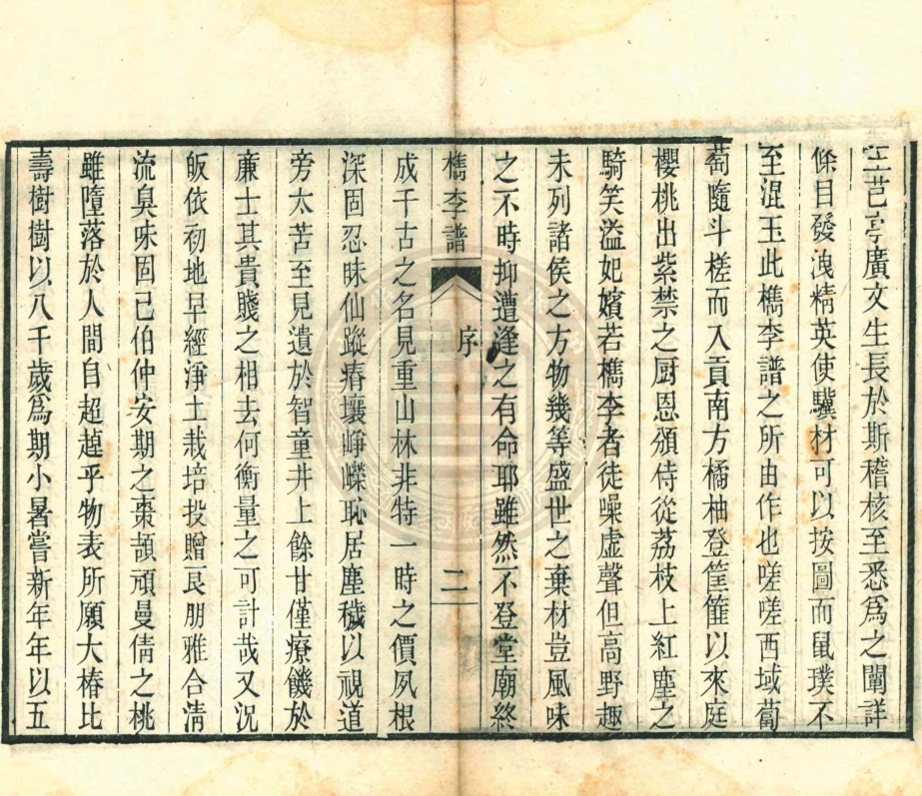 王芑亭廣文生長於斯稽核至悉爲之闡詳
條目發洩精英使驥材可以按圖而鼠璞不
至混玉此檇李譜之所由作也嗟嗟西域蔔
萄隨斗槎而入貢南方橘柚登筐篚以來庭
櫻桃出紫禁之厨恩頒侍從荔枝上紅塵之
騎笑溢妃嬪若檇李者徒噪虛聲但高野趣
未列諸侯之方物幾等盛世之棄材豈風味
之不時抑遭逢之有命耶雖然不登堂廟終
檇李譜 序 二
成千古之名見重山林非特一時之價夙根
深固忍昧仙蹤瘠壤崢嶸恥居塵穢以視道
旁太苦至見遺於智童井上餘甘僅療饑於
廉士其貴賤之相去何衡量之可計哉又況
皈依初地早經淨土栽培投贈良朋雅合清
流臭味固已伯仲安期之棗頡頏曼倩之桃
雖墮落於人間自超越乎物表所願大椿比
壽樹樹以八千歲爲期小暑嘗新年年以五